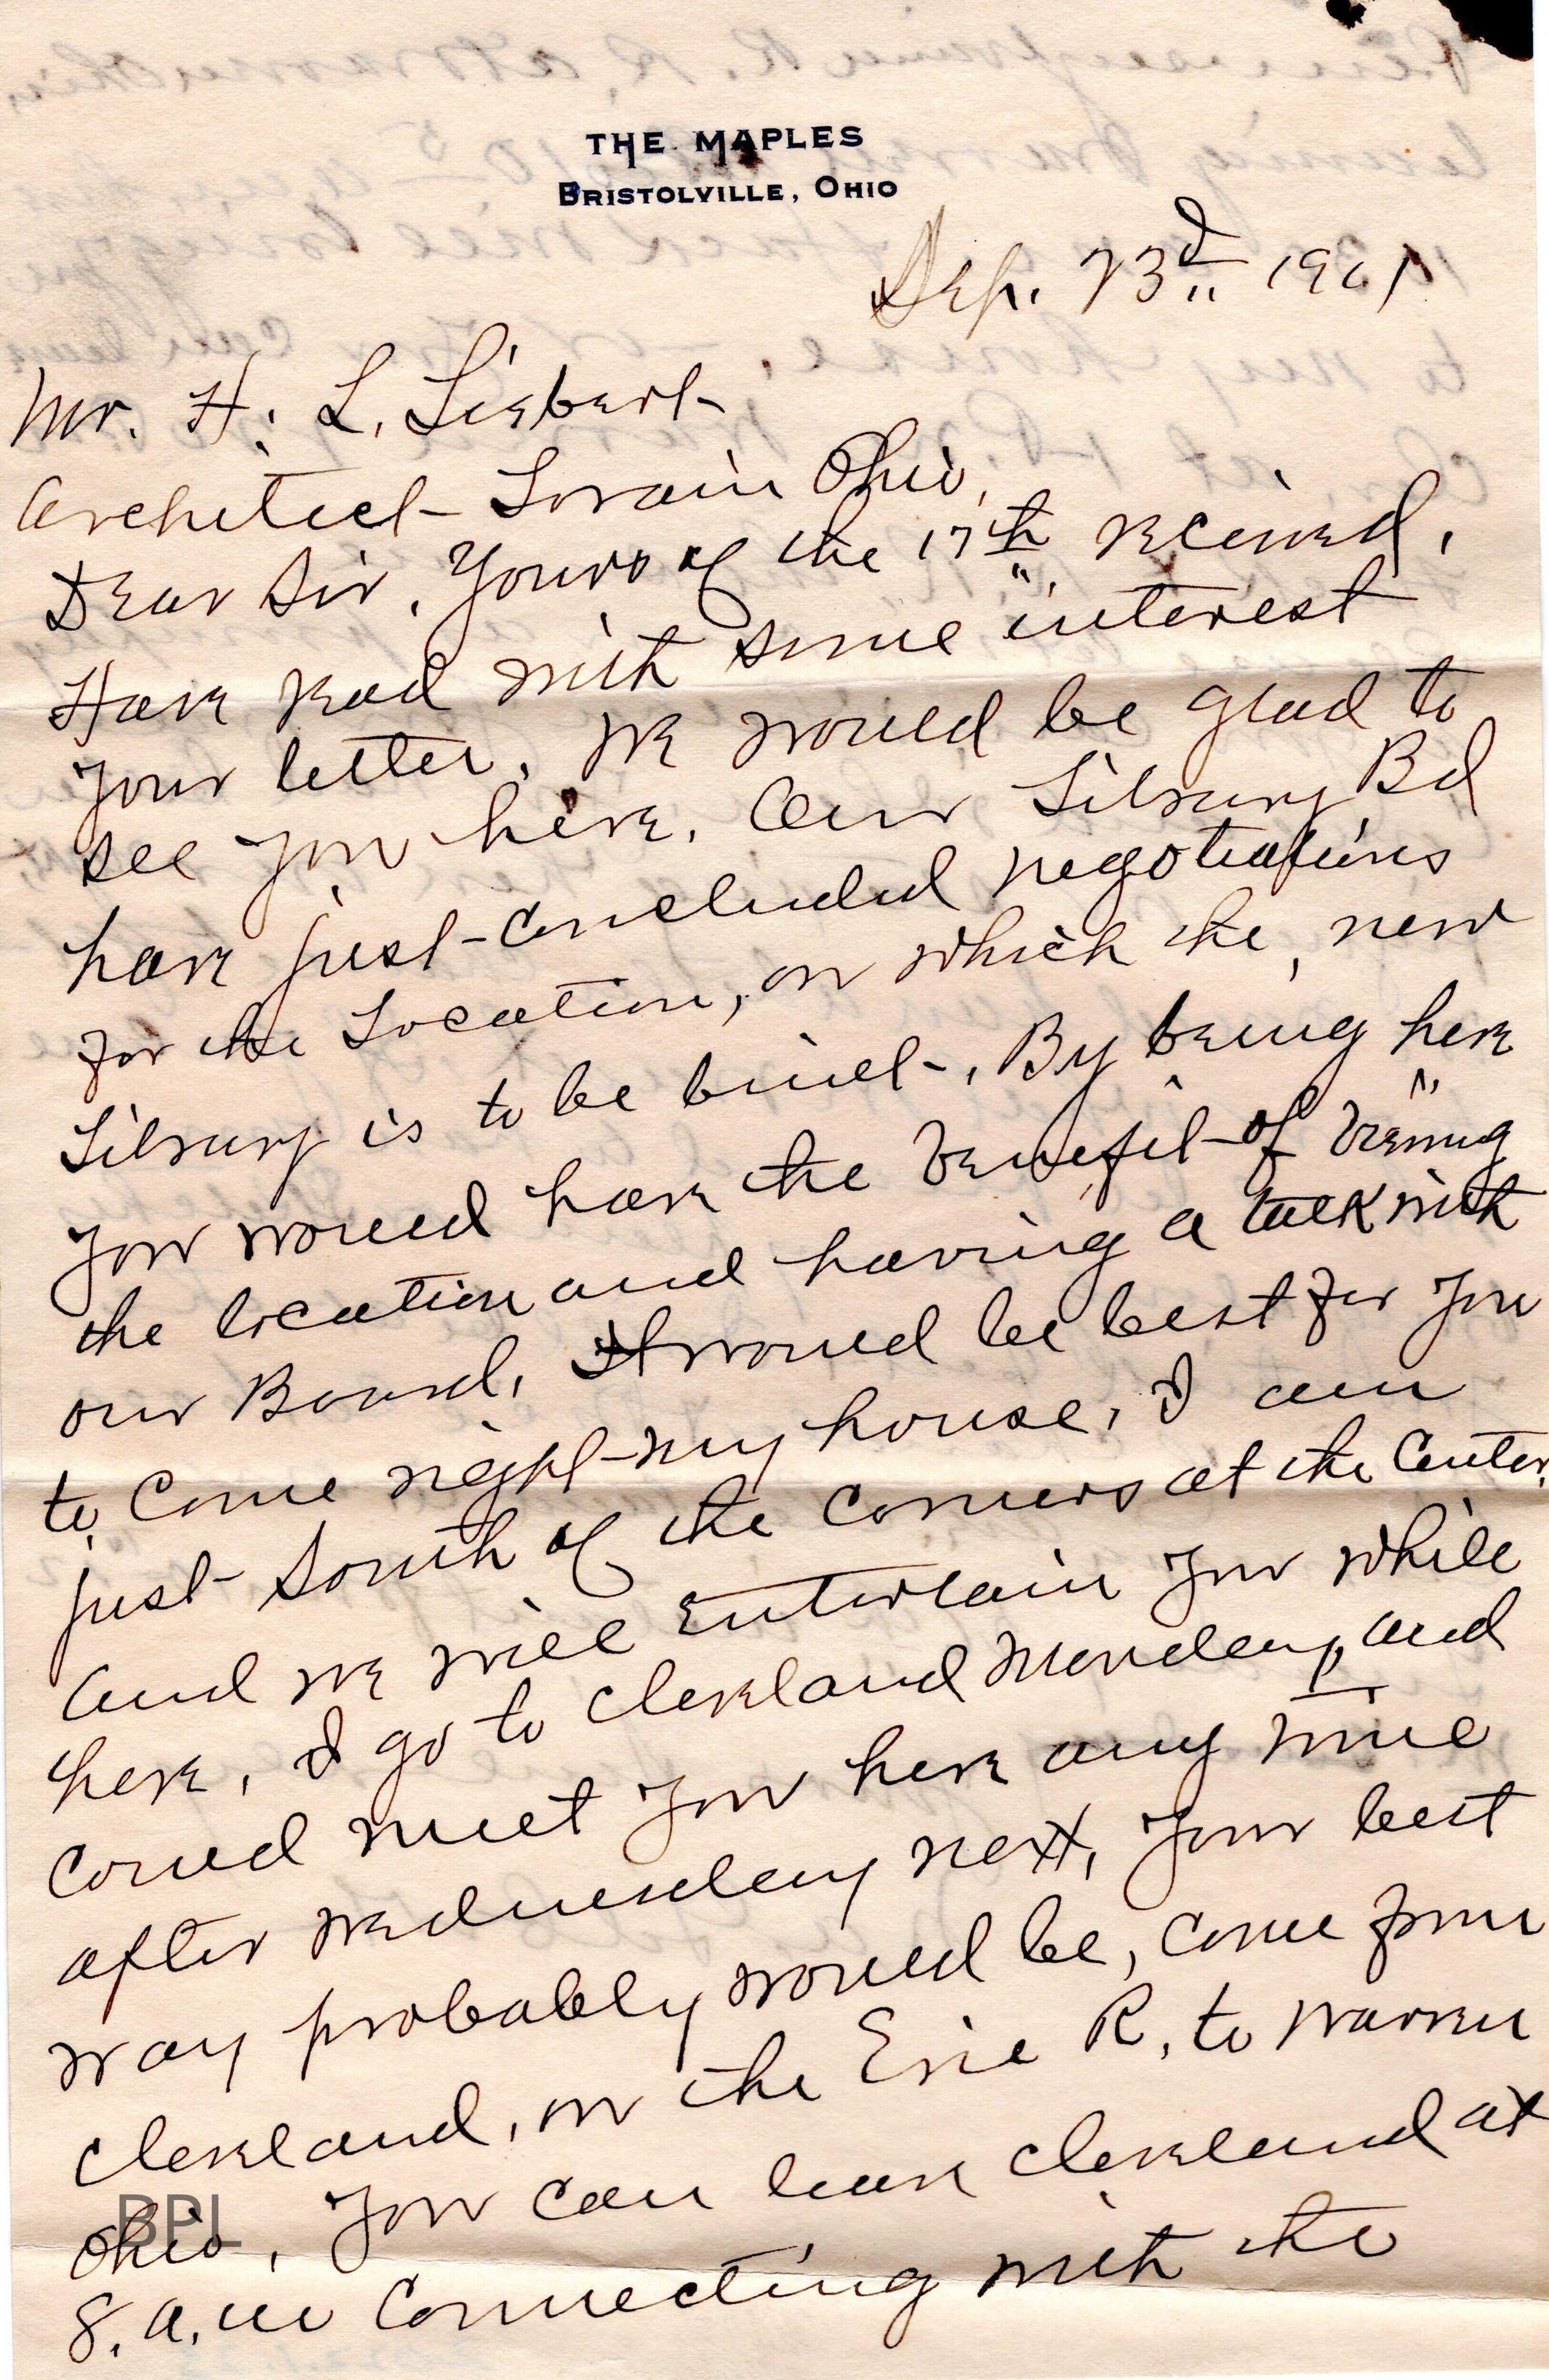 THE MAPLES
BRISTOLVILLE, OHIO
Sep. 23d 1911
Mr. H. L. Liebert
Architect Lorain Ohio,
Dear Sir, Yours of the 17th received,
Have read with some interest
your letter, we would be glad to
see you here. Our Library Bd
have just concluded negotiations
for the Location, on which the, new
Library is to be built. By being here
you would have the benefit of viewing
the location and having a talk with
our Board, It would be best for you
to come right my house, I am
just South of the Corners at the Center,
and we will entertain you while
here, I go to Cleveland Monday, and
could meet you here any time
after Wednesday next, your best
way probably would be, come from
Cleveland, on the Erie R, to Warren
Ohio, you can leave Cleveland at
8. a.m Connecting with the
BPL